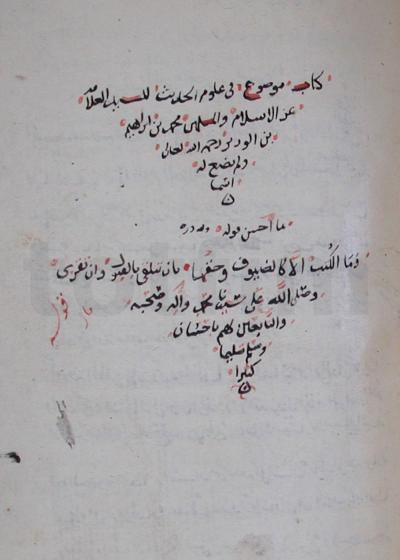 كتاب موضوع في علوم الحديث للسيد العلامه
عز الاسلام والمسلمين محمد بن ابراهيم
بن الوزير رحمه الله تعالى
ولم يضع له
اسما
ما احسن قوله ولله دره
وَمَا الكُتبُ الّا كالضيوف وحقها بان تتلقى بالقبول وان تقرى
وصلى الله على سيدنا محمد وآله وصحبه
والتابعين لهم باحسان
وسلم تسليما
كثيرا